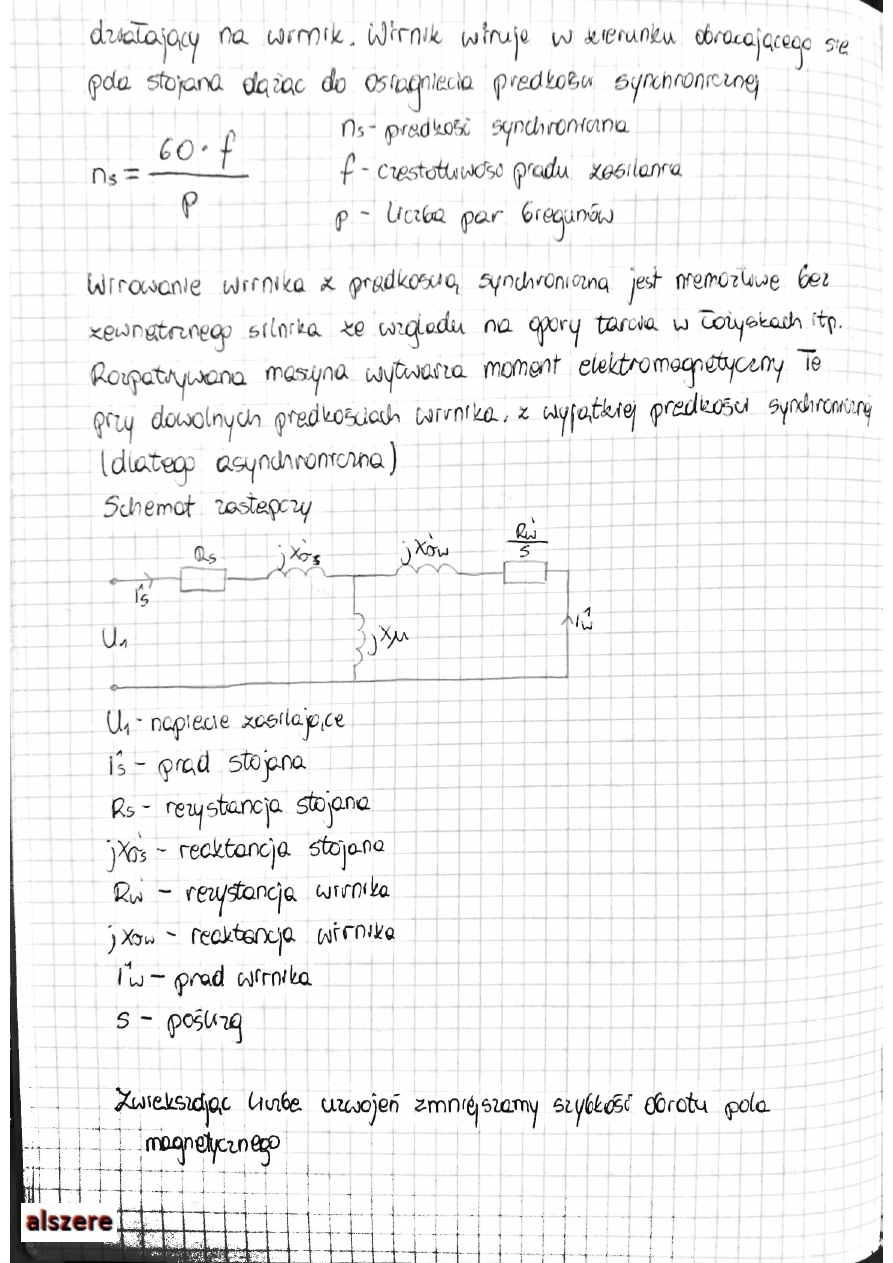 działający na wirnik. Wirnik wiruje w kierunku obracającego się
pola stojana dążąc do osiągniecia prędkości synchronicznej
ns = 60·f / p
ns - prędkość synchroniczna
f - częstotliwość prądu zasilania
p - liczba par biegunów
Wirowanie wirnika z prądkością synchroniczną jest niemożliwe bez
zewnątrznego silnika ze względu na opory tarcia w łożyskach itp.
Rozpatrywana maszyna wytwarza moment elektromagnetyczny Te
przy dowolnych prędkościach wirnika, z wyjątkiej prędkości synchronicznej
(dlatego asynchroniczna)
Schemat zastępczy
Rs jXσs jXσw Rw/s
is
U1 jXμ iw
U1 - napięcie zasilające
is - prąd stojana
Rs - rezystancja stojana
jXσs - reaktancja stojana
Rw - rezystancja wirnika
jXσw - reaktancja wirnika
iw - prąd wirnika
s - poślizg
Zwiekszając liczbe uzwojeń zmniejszamy szybkość obrotu pola
magnetycznego
alszere